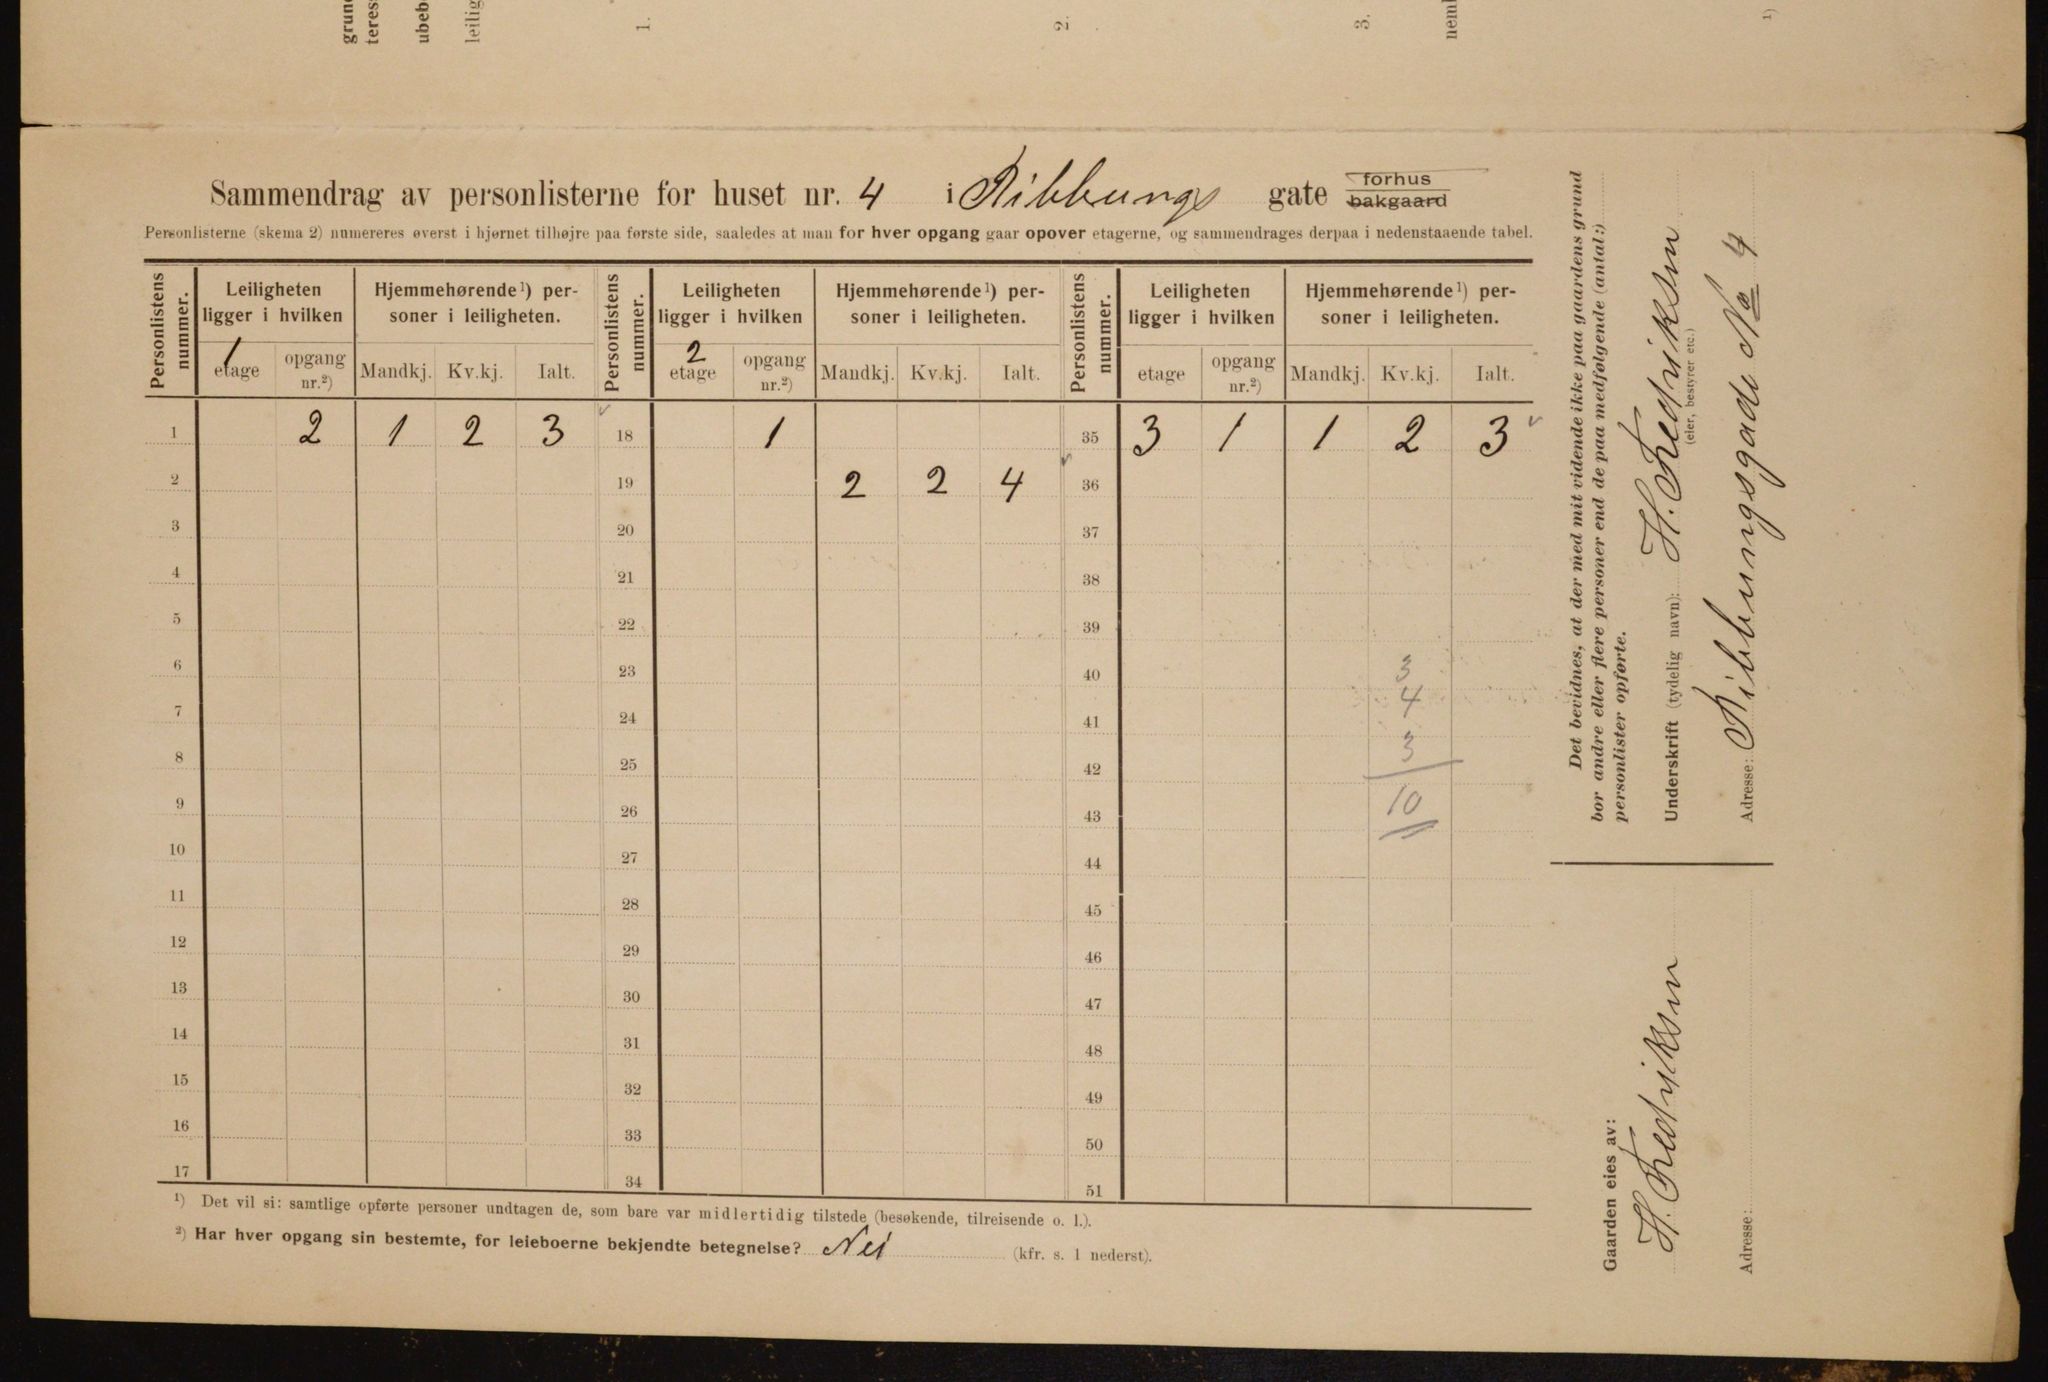 grun
teres
ubeb
leilig
1.
2.
3.
nem
1)
Sammendrag av personlisterne for huset nr. 4 i Ribbungs gate forhus bakgaard
Personlisterne (skema 2) numereres øverst i hjørnet tilhøjre paa første side, saaledes at man for hver opgang gaar opover etagerne, og sammendrages derpaa i nedenstaaende tabel.
Personlistens nummer. Leiligheten ligger i hvilken Hjemmehørende1) personer i leiligheten. Personlistens nummer. Leiligheten ligger i hvilken Hjemmehørende1) personer i leiligheten. Personlistens nummer. Leiligheten ligger i hvilken Hjemmehørende1) personer i leiligheten.
1 etage opgang nr.2) Mandkj. Kv.kj. Ialt. 2 etage opgang nr.2) Mandkj. Kv.kj. Ialt. etage opgang nr.2) Mandkj. Kv.kj. Ialt.
1 2 1 2 3 18 1 35 3 1 1 2 3
2 19 2 2 4 36
3 20 37
4 21 38
5 22 39
6 23 40 3
7 24 41 4
8 25 42 3
9 26 43 10
10 27 44
11 28 45
12 29 46
13 30 47
14 31 48
15 32 49
16 33 50
17 34 51
1) Det vil si: samtlige opførte personer undtagen de, som bare var midlertidig tilstede (besøkende, tilreisende o. l.).
2) Har hver opgang sin bestemte, for leieboerne bekjendte betegnelse? Nei (kfr. s. 1 nederst).
Det bevidnes, at der med mit vidende ikke paa gaardens grund
bor andre eller flere personer end de paa medfølgende (antal:)
personlister opførte.
Underskrift (tydelig navn): H. Fredriksen
(eier, bestyrer etc.)
Adresse: Ribbungsgade No 4
Gaarden eies av:
H. Fredriksen
Adresse: